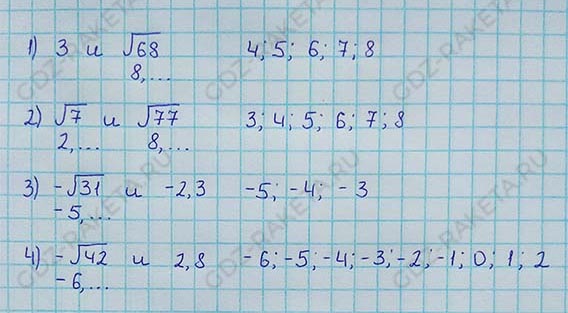 1) 3 и √68 4; 5; 6; 7; 8
8,...
2) √7 и √77 3; 4; 5; 6; 7; 8
2,... 8,...
3) -√31 и -2,3 -5; -4; -3
-5,...
4) -√42 и 2,8 -6; -5; -4; -3; -2; -1; 0; 1; 2
-6,...
GDZ-RAKETA.RU